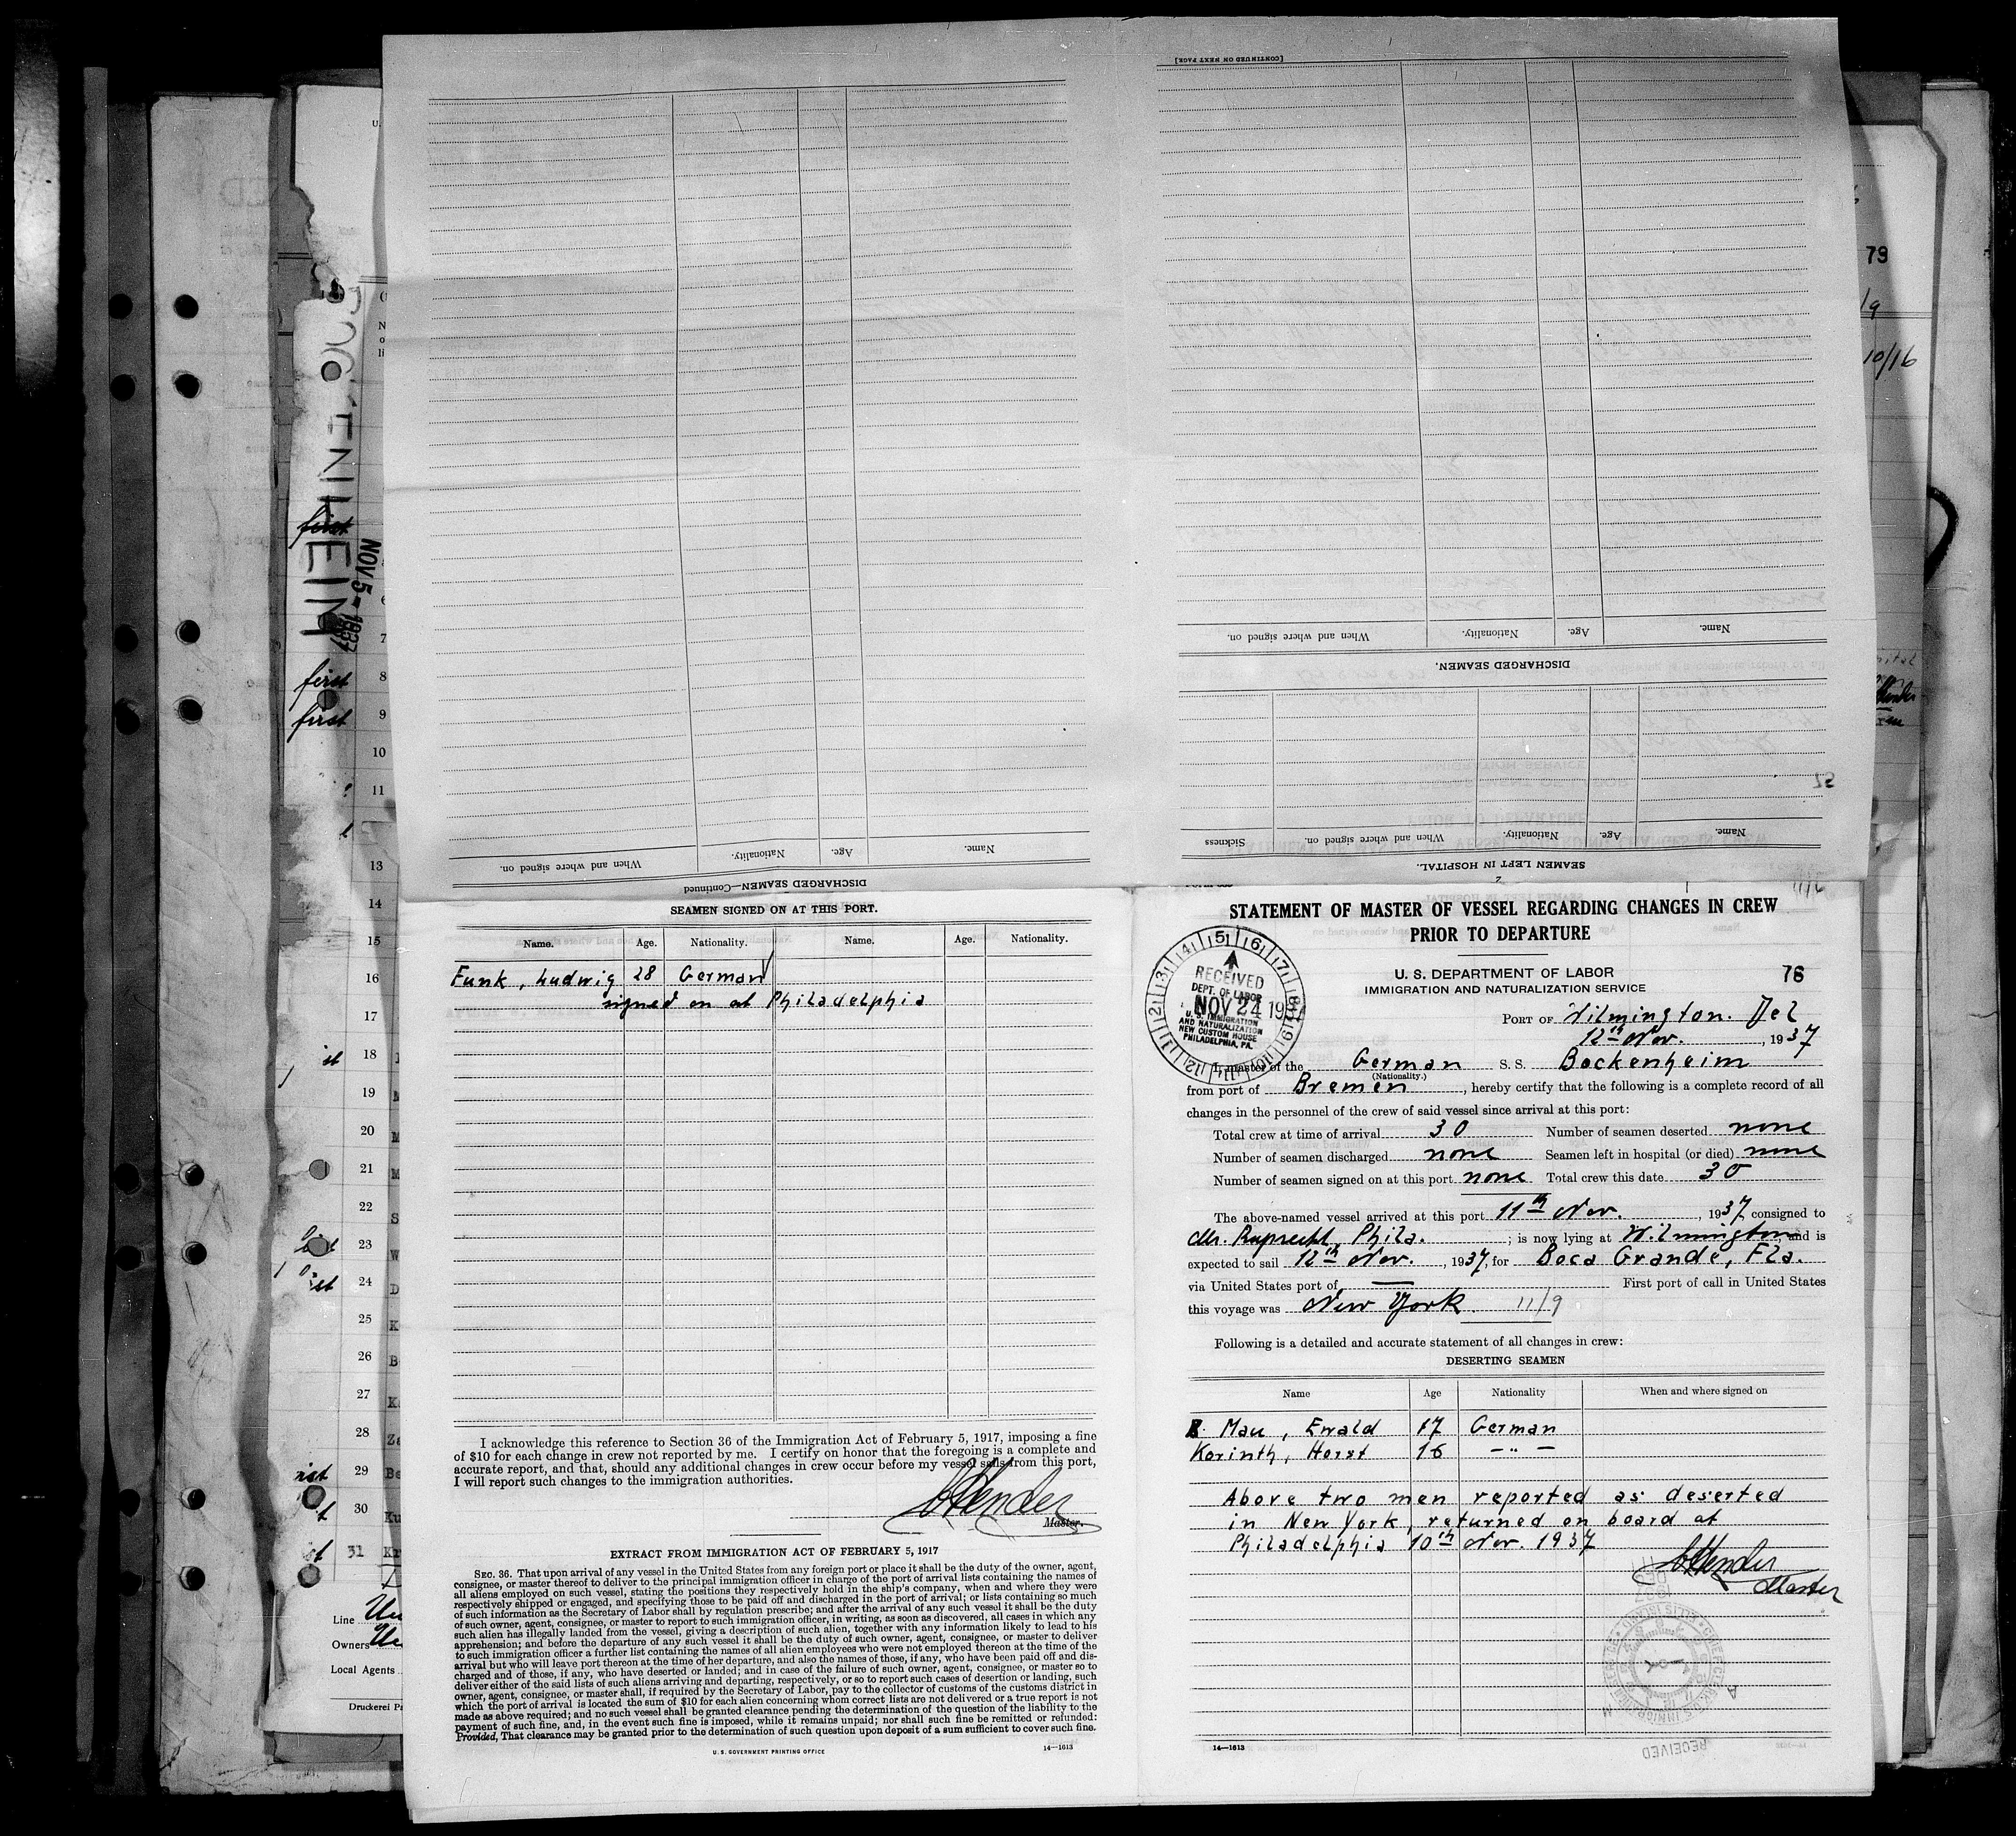 [CONTINUED ON NEXT PAGE]
Name. Age. Nationality. When and where signed on.
DISCHARGED SEAMEN.
Name. Age. Nationality. When and where signed on. Sickness
SEAMEN LEFT IN HOSPITAL.
Name. Age. Nationality. When and where signed on.
DISCHARGED SEAMEN—Continued
SEAMEN SIGNED ON AT THIS PORT.
Name. Age. Nationality. Name. Age. Nationality.
Funk, Ludwig 28 German
signed on at Philadelphia
I acknowledge this reference to Section 36 of the Immigration Act of February 5, 1917, imposing a fine
of $10 for each change in crew not reported by me. I certify on honor that the foregoing is a complete and
accurate report, and that, should any additional changes in crew occur before my vessel sails from this port,
I will report such changes to the immigration authorities.
Master.
EXTRACT FROM IMMIGRATION ACT OF FEBRUARY 5, 1917
SEC. 36. That upon arrival of any vessel in the United States from any foreign port or place it shall be the duty of the owner, agent,
consignee, or master thereof to deliver to the principal immigration officer in charge of the port of arrival lists containing the names of
all aliens employed on such vessel, stating the positions they respectively hold in the ship's company, when and where they were
respectively shipped or engaged, and specifying those to be paid off and discharged in the port of arrival; or lists containing so much
of such information as the Secretary of Labor shall by regulation prescribe; and after the arrival of any such vessel it shall be the duty
of such owner, agent, consignee, or master to report to such immigration officer, in writing, as soon as discovered, all cases in which any
such alien has illegally landed from the vessel, giving a description of such alien, together with any information likely to lead to his
apprehension; and before the departure of any such vessel it shall be the duty of such owner, agent, consignee, or master to deliver
to such immigration officer a further list containing the names of all alien employees who were not employed thereon at the time of the
arrival but who will leave port thereon at the time of her departure, and also the names of those, if any, who have been paid off and dis-
charged and of those, if any, who have deserted or landed; and in case of the failure of such owner, agent, consignee, or master so to
deliver either of the said lists of such aliens arriving and departing, respectively, or so to report such cases of desertion or landing, such
owner, agent, consignee, or master shall, if required by the Secretary of Labor, pay to the collector of customs of the customs district in
which the port of arrival is located the sum of $10 for each alien concerning whom correct lists are not delivered or a true report is not
made as above required; and no such vessel shall be granted clearance pending the determination of the question of the liability to the
payment of such fine, and, in the event such fine is imposed, while it remains unpaid; nor shall such fine be remitted or refunded:
Provided, That clearance may be granted prior to the determination of such question upon deposit of a sum sufficient to cover such fine.
U. S. GOVERNMENT PRINTING OFFICE 14—1613
STATEMENT OF MASTER OF VESSEL REGARDING CHANGES IN CREW
PRIOR TO DEPARTURE
U. S. DEPARTMENT OF LABOR
IMMIGRATION AND NATURALIZATION SERVICE
RECEIVED
DEPT. OF LABOR
NOV 24 1937
U. S. IMMIGRATION
AND NATURALIZATION
NEW CUSTOM HOUSE
PHILADELPHIA, PA.
PORT OF Wilmington. Del
12th Nov. , 1937
I, master of the German S. S. Bockenheim
(Nationality.)
from port of Bremen , hereby certify that the following is a complete record of all
changes in the personnel of the crew of said vessel since arrival at this port:
Total crew at time of arrival 30 Number of seamen deserted none
Number of seamen discharged none Seamen left in hospital (or died) none
Number of seamen signed on at this port none Total crew this date 30
The above-named vessel arrived at this port 11th Nov. , 1937, consigned to
Mr. Ruprecht, Phila. ; is now lying at Wilmington and is
expected to sail 12th Nov. , 1937, for Boca Grande, Fla.
via United States port of — First port of call in United States
this voyage was New York. 11/9
Following is a detailed and accurate statement of all changes in crew:
DESERTING SEAMEN
Name Age Nationality When and where signed on
Mau, Ewald 17 German
Korinth, Horst 16 — " —
Above two men reported as deserted
in New York, returned on board at
Philadelphia 10th Nov. 1937
Master
14—1613
RECEIVED
BOCKENHEIM
NOV 5 - 1937
first
first
first
8
9
10
11
13
14
15
16
17
18
19
20
21
22
23
24
25
26
27
28
29
30
31
Line
Owners
Local Agents
79
10/16